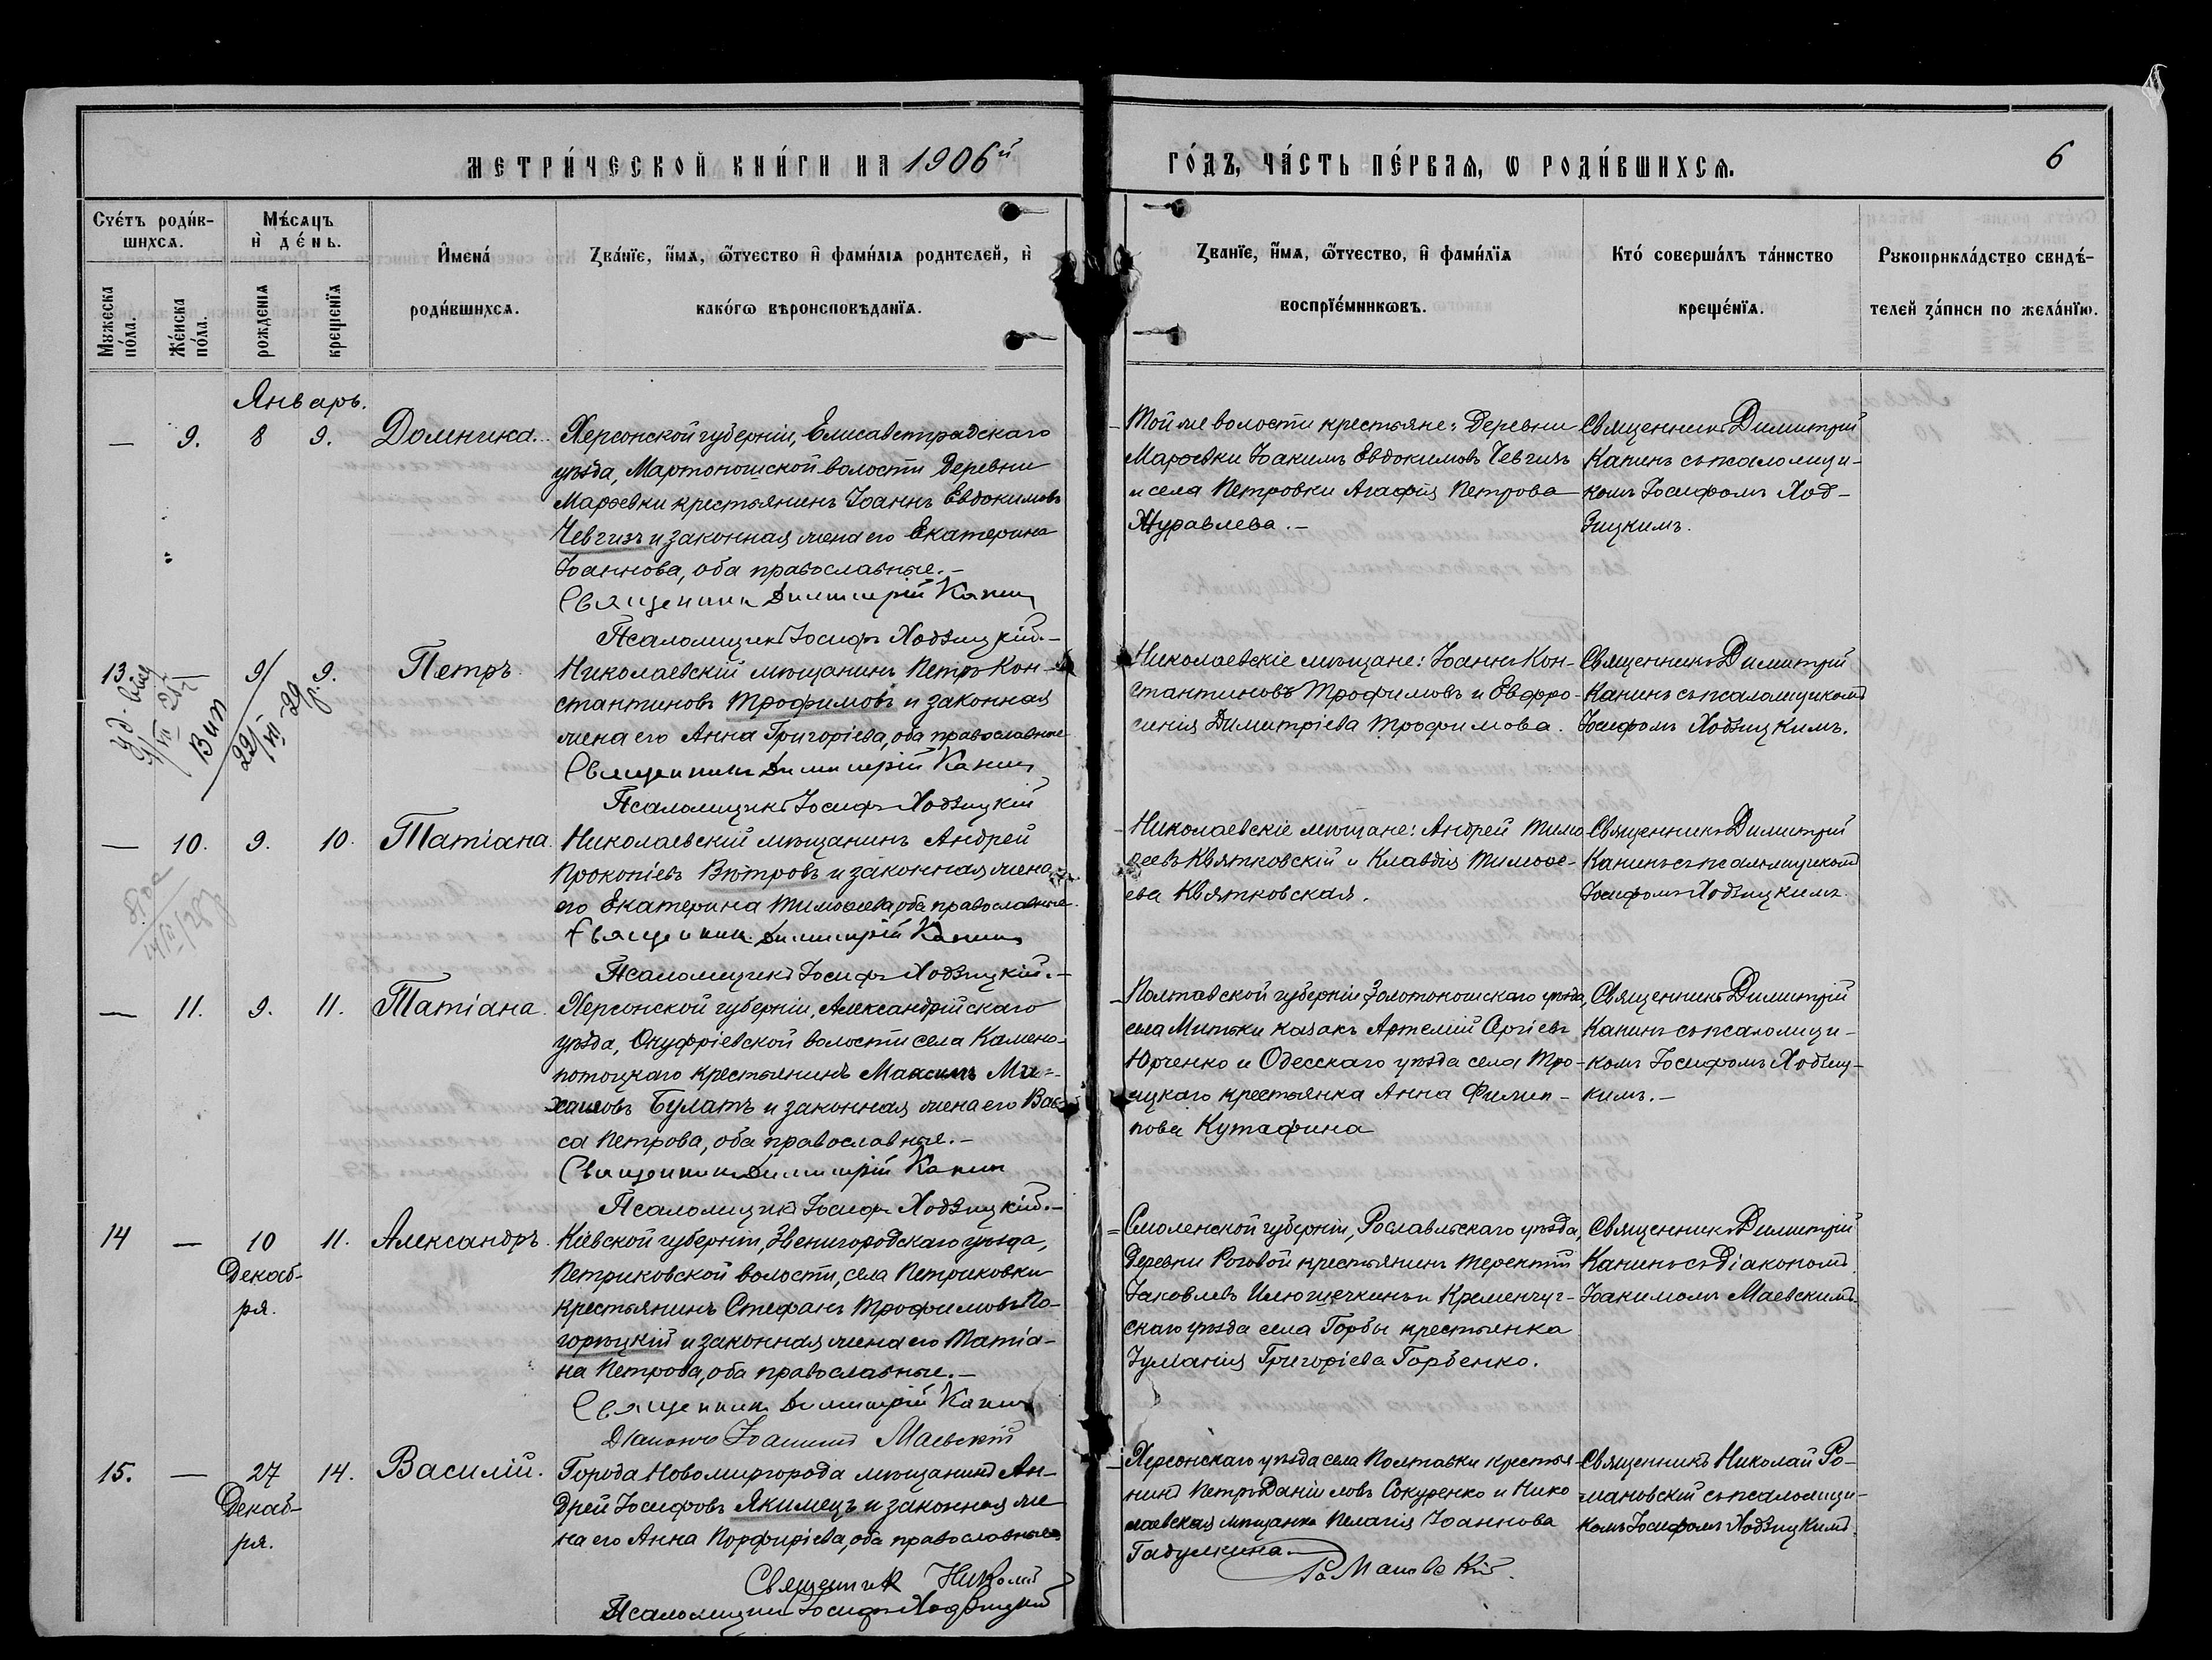 МЕТРИ́ЧЕСКОЙ КНИ́ГИ НА 1906й
ГО́ДЪ, ЧА́СТЬ ПЕ́РВАѦ, Ѡ РОДИ́ВШИХСѦ.
6
Счéтъ роди́в-
шихсѧ.
Мꙋжеска
по́ла.
Же́нска
по́ла.
Мѣ́сѧцъ
и҆ де́нь.
рожденїѧ
крещенїѧ
И҆мена́
роди́вшихсѧ.
Зва́нїе, и҆́мѧ, ѻ҆́тчество и҆ фами́лїѧ родителей, и҆
како́гѡ вѣроисповѣданїѧ.
Зва́нїе, и҆́мѧ, ѻ҆́тчество, и҆ фами́лїѧ
воспрїе́мникѡвъ.
Кто́ соверша́лъ та́инство
креще́нїѧ.
Рꙋкоприкла́дство свидѣ́-
телей за́писи по жела́нїю.
Январь.
— 9. 8 9. Домника.
Херсонской губерніи, Елисаветградскаго
уѣзда, Мартоношской волости Деревни
Марѳевки крестьянинъ Іоаннъ Евдокимовъ
Чевгизъ и законная жена его Екатерина
Іоаннова, оба православные.—
Священникъ Димитрій Канинъ
Псаломщикъ Іосифъ Ходзицкій.—
Той же волости крестьяне: Деревни
Марѳевки Іоакимъ Евдокимовъ Чевгизъ
и села Петровки Агафія Петрова
Журавлева.—
Священникъ Димитрій
Канинъ съ псаломщи-
комъ Іосифомъ Ход-
зицкимъ.
13. — 9 9. Петръ.
22/VII 29
Николаевскій мѣщанинъ Петръ Кон-
стантиновъ Трофимовъ и законная
жена его Анна Григоріева, оба православные
Священникъ Димитрій Канинъ
Псаломщикъ Іосифъ Ходзицкій
Николаевскіе мѣщане: Іоаннъ Кон-
стантиновъ Трофимовъ и Евфро-
синія Димитріева Трофимова.
Священникъ Димитрій
Канинъ съ псаломщикомъ
Іосифомъ Ходзицкимъ.
— 10. 9. 10. Татіана.
Николаевскій мѣщанинъ Андрей
Прокопіевъ Вѣтровъ и законная жена
его Екатерина Тимоѳеева, оба православные.
Священникъ Димитрій Канинъ
Псаломщикъ Іосифъ Ходзицкій.—
Николаевскіе мѣщане: Андрей Тимо
ѳеевъ Квятковскій и Клавдія Тимоѳе-
ева Квятковская.
Священникъ Димитрій
Канинъ съ псаломщикомъ
Іосифомъ Ходзицкимъ
— 11. 9. 11. Татіана.
Херсонской губерніи, Александрійскаго
уѣзда, Онуфріевской волости села Камено-
потоцкаго крестьянинъ Максимъ Ми-
хаиловъ Булатъ и законная жена его Вас
са Петрова, оба православные.—
Священникъ Димитрій Канинъ
Псаломщикъ Іосифъ Ходзицкій.—
Полтавской губерніи Золотоношскаго уѣзда,
села Митьки казакъ Артемій Сргіевъ
Юрченко и Одесскаго уѣзда села Тро-
ицкаго крестьянка Анна Филип-
пова Кутафина
Священникъ Димитрій
Канинъ съ псаломщи-
комъ Іосифомъ Ходзиц-
кимъ.—
14 — 10 11. Александръ.
Декаб-
ря.
Кіевской губерніи, Звенигородскаго уѣзда,
Петриковской волости, села Петриковки
крестьянинъ Стефанъ Трофимовъ По-
горѣцкій и законная жена его Татіа-
на Петрова, оба православные.—
Священникъ Димитрій Канинъ
Діаконъ Іоакимъ Маевскій
Смоленской губерніи, Рославльскаго уѣзда,
Деревни Роговой крестьянинъ Терентій
Іаковлевъ Илюшечкинъ и Кременчуг-
скаго уѣзда села Горбы крестьянка
Іуліанія Григоріева Горбенко.
Священникъ Димитрій
Канинъ съ Діакономъ
Іоакимомъ Маевскимъ.
15. — 27 14. Василій.
Декаб-
ря.
Города Новомиргорода мѣщанинъ Ан-
дрей Іосифовъ Якимецъ и законная же
на его Анна Порфиріева, оба православные
Священник Николай
Романовскій.
Псаломщикъ Іосифъ Ходзицкій
Херсонскаго уѣзда села Полтавки крестья-
нинъ Петръ Даніиловъ Сокуренко и Нико
лаевская мѣщанка Пелагія Іоаннова
Гадулкина.—
Священникъ Николай Ро-
мановскій съ псаломщи-
комъ Іосифомъ Ходзицкимъ.